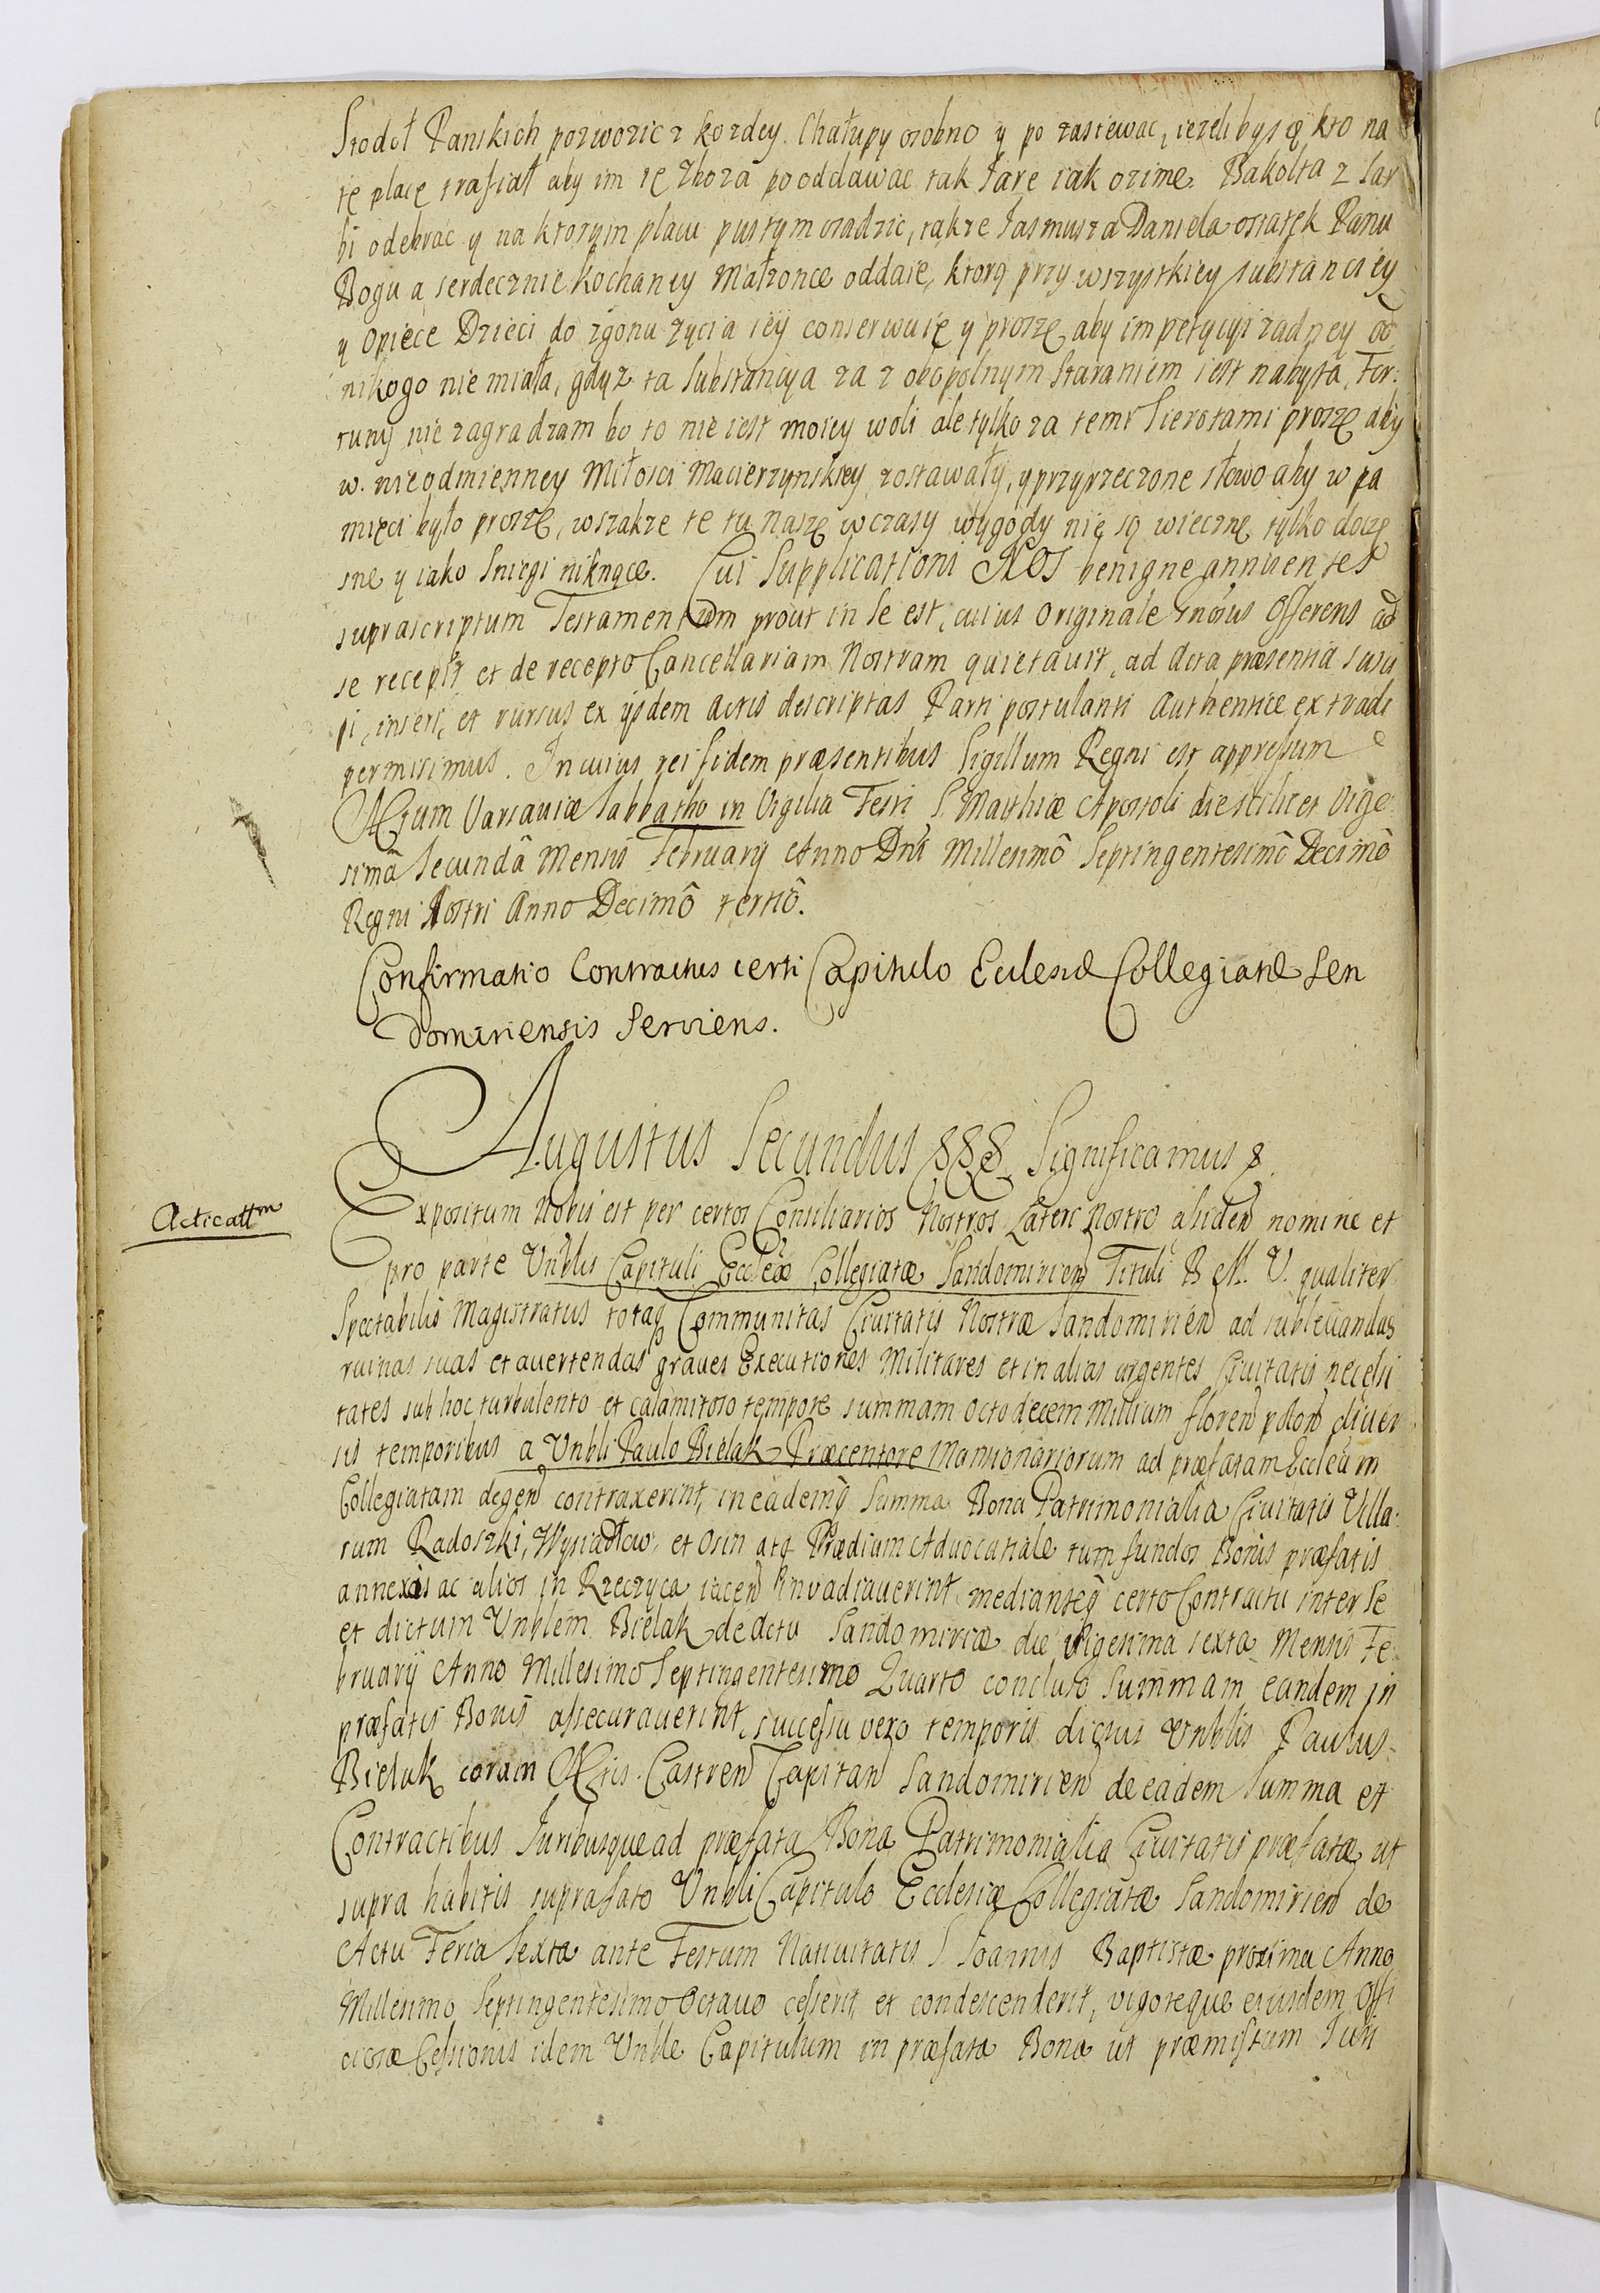 Stodoł Panskich pozwozic z kozdey Chałupy osobno y po zasiewac, iezeli by się kto na
te place trafiał aby im te zboza pooddawac tak Jare iak ozime. Bakołta z Sar
bi odebrac y na ktorym placu pustym osadzic, takze Jasmusza Daniela ostatek Panu
Bogu a serdecznie kochaney Małzonce oddaie, ktorą przy wszystkiey substancĳ ey
y Opiece Dzieci do zgonu zycia iey conserwuię y proszę aby impetycyi zadney od
nikogo nie miała, gdyz ta Substancya za z obopolnym Staraniem iest nabyta, For:
tuny nie zagradzam bo to nie iest moiey woli ale tylko za temi Sierotami proszę aby
w. nieodmienney Miłosci Macierzynskiey zostawały, y przyrzeczone słowo aby w pa
mięci było proszę, wszakze te tu nasze wczasy wygody nie są wieczne tylko docze
sne y iako Sniegi niknące. Cui Supplicationi NOS benigne annuentes
suprascriptum Testamentum prout in se est, cuius Originale Offerens ad
se recepit et de recepto Cancellariam Nostram quietauit, ad Acta præsentia susci
pi, inseri, et rursus ex ijsdem Actis descriptas Parti postulanti Authentice extradi
permisimus. In cuius rei fidem præsentibus Sigillum Regni est appressum
Actum Varsauiæ Sabbatho in Vigilia Festi S. Mathiæ Apostoli die scilicet Vige
simâ Secundâ Mensis February Anno Dni Millesimô Septingentesimô Decimô
Regni Nostri Anno Decimô tertiô.
Confirmatio Contractus certi Capitulo Eclesiæ Collegiatæ Sen
domiriensis Serviens.
Augustus Secundus &&& Significamus &
Acticattm
Expositum Nobis est per certos Consiliarios Nostros Lateri Nostro assiden nomine et
pro parte Vnblis Capituli Eccleæ Collegiatæ Sandomirien Tituli B M. V. qualiter
Spectabilis Magistratus totaq Communitas Ciuitatis Nostræ Sandomirien ad subleuandas
ruinas suas et auertendas graues Executiones Militares et in alias urgentes Ciuitatis necessi
tates sub hoc turbulento et calamitoso tempore summam octodecem Millium floren polon diuer
sis temporibus a Vnbli Paulo Bielak Præcentore Mansionariorum ad præfatam Eccleam
Collegiatam degen contraxerint, in eademq Summa Bona Patrimonialia Ciuitatis Villa:
rum Radoszki, Wysiadłow, et Osin atq Prædium Aduocatiale tum fundos Bonis præfatis
annexos ac alios in Rzeczyca iacen inuadiauerint, medianteq certo Contractu inter se
et dictum Vnblem Bielak de Actu Sandomiriæ die Vigesima sexta Mensis Fe:
bruarij Anno Millesimo Septingentesimo Quarto concluso Summam eandem in
præfatis Bonis assecurauerint, successu vero temporis dictus Vnblis Paulus
Bielak coram Actis Castren Capitan Sandomirien de eadem Summa et
Contractibus Juribusque ad præfata Bona Patrimonialia Ciuitatis præfatæ ut
supra habitis suprafato Vnbli Capitulo Ecclesiæ Collegiatæ Sandomirien de
Actu Feria Sexta ante Festum Natiuitatis S Joannis Baptistæ proxima Anno
Millesimo Septingentesimo Octauo cesserit et condescenderit, vigoreque eiusdem Offi
ciosæ Cessionis idem Vnble Capitulum in præfata Bona ut præmissum Juri